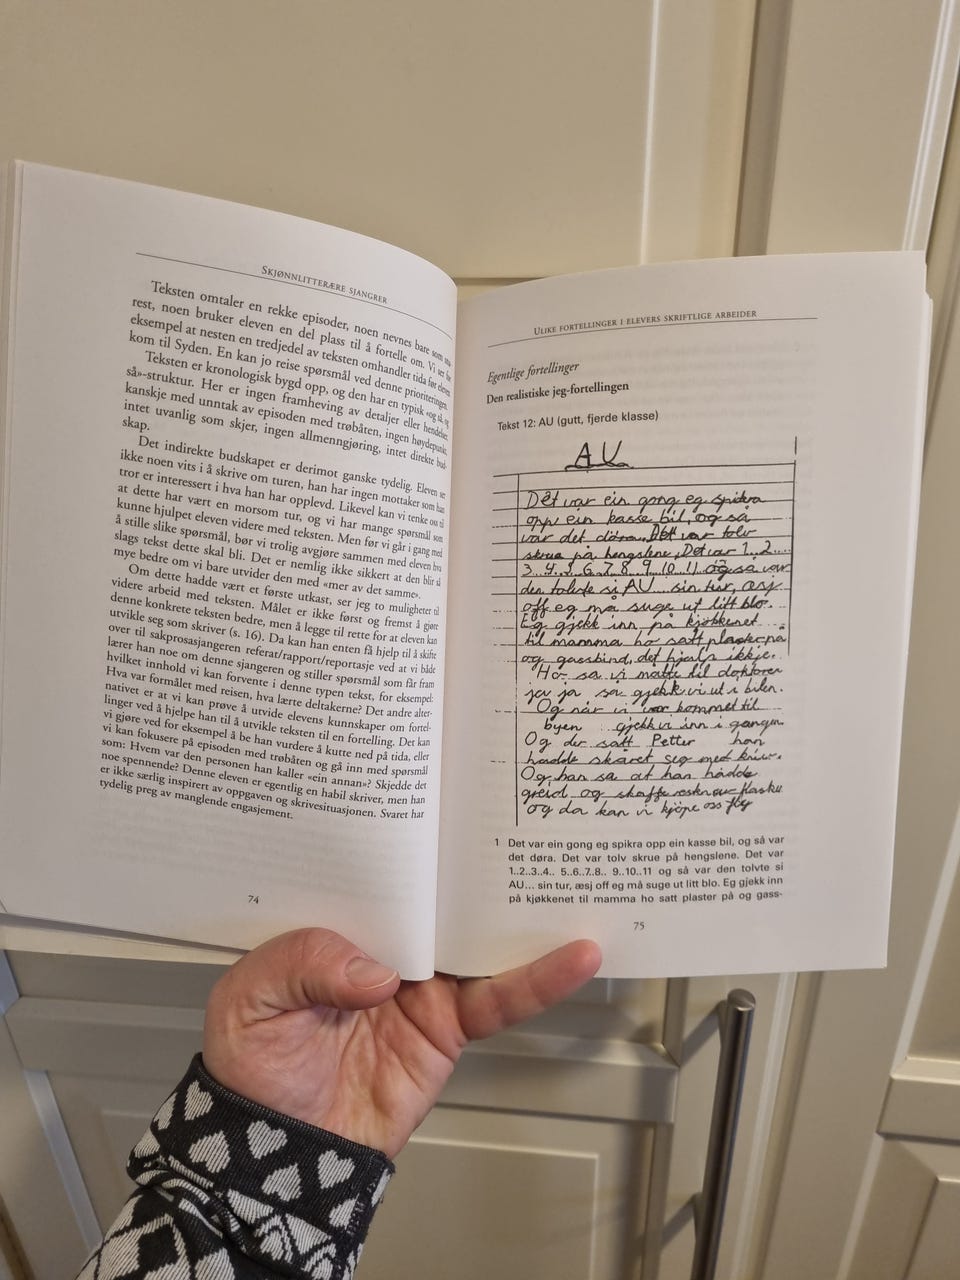 SKJØNNLITTERÆRE SJANGRER
Teksten omtaler en rekke episoder, noen nevnes bare som
rest, noen bruker eleven en del plass til å fortelle om. Vi ser for
eksempel at nesten en tredjedel av teksten omhandler tida før eleven
kom til Syden. En kan jo reise spørsmål ved denne prioriteringen.
Teksten er kronologisk bygd opp, og den har en typisk «og så, og
så»-struktur. Her er ingen framheving av detaljer eller hendelser,
kanskje med unntak av episoden med trøbåten, ingen høydepunkt,
intet uvanlig som skjer, ingen allmenngjøring, intet direkte bud-
skap.
Det indirekte budskapet er derimot ganske tydelig. Eleven ser
ikke noen vits i å skrive om turen, han har ingen mottaker som han
tror er interessert i hva han har opplevd. Likevel kan vi tenke oss til
at dette har vært en morsom tur, og vi har mange spørsmål som
kunne hjulpet eleven videre med teksten. Men før vi går i gang med
å stille slike spørsmål, bør vi trolig avgjøre sammen med eleven hva
slags tekst dette skal bli. Det er nemlig ikke sikkert at den blir så
mye bedre om vi bare utvider den med «mer av det samme».
Om dette hadde vært et første utkast, ser jeg to muligheter til
videre arbeid med teksten. Målet er ikke først og fremst å gjøre
denne konkrete teksten bedre, men å legge til rette for at eleven kan
utvikle seg som skriver (s. 16). Da kan han enten få hjelp til å skifte
over til sakprosasjangeren referat/rapport/reportasje ved at vi både
lærer han noe om denne sjangeren og stiller spørsmål som får fram
hvilket innhold vi kan forvente i denne typen tekst, for eksempel:
Hva var formålet med reisen, hva lærte deltakerne? Det andre alter-
nativet er at vi kan prøve å utvide elevens kunnskaper om fortel-
linger ved å hjelpe han til å utvikle teksten til en fortelling. Det kan
vi gjøre ved for eksempel å be han vurdere å kutte ned på tida, eller
vi kan fokusere på episoden med trøbåten og gå inn med spørsmål
som: Hvem var den personen han kaller «ein annan»? Skjedde det
noe spennende? Denne eleven er egentlig en habil skriver, men han
er ikke særlig inspirert av oppgaven og skrivesituasjonen. Svaret har
tydelig preg av manglende engasjement.
74
ULIKE FORTELLINGER I ELEVERS SKRIFTLIGE ARBEIDER
Egentlige fortellinger
Den realistiske jeg-fortellingen
Tekst 12: AU (gutt, fjerde klasse)
AU
Det var ein gong eg spikra
opp ein kasse bil, og så
var det døra. Det var tolv
skrue på hengslene, Det var 1..2....
3..4..5..6..7..8..9..10..11 og så var
den tolvte si AU.... sin tur, æsj
off eg må suge ut litt blo.
Eg gjekk inn på kjøkkenet
til mamma ho satt plaster på
og gassbind, det hjalp ikkje.
Ho sa vi måtte til doktoren
ja ja sa gjekk vi ut i bilen.
Og når vi var kommet til
byen gjekk vi inn i gangen
Og der satt Petter han
hadde skåret seg med kniv.
Og han sa at han hadde
greid og skaffe flaske
og da kan vi kjøpe oss
1 Det var ein gong eg spikra opp ein kasse bil, og så var
det døra. Det var tolv skrue på hengslene. Det var
1..2..3..4.. 5..6..7..8.. 9..10..11 og så var den tolvte si
AU... sin tur, æsj off eg må suge ut litt blo. Eg gjekk inn
på kjøkkenet til mamma ho satt plaster på og gass-
75